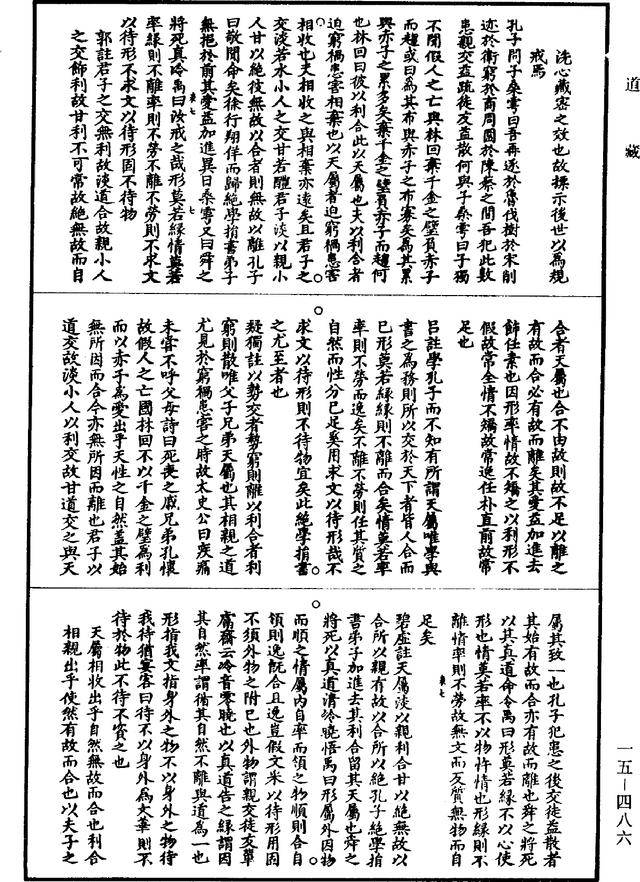 道藏
洗心藏密之效也故標示後世以為規
戒焉
孔子問子桑雽曰吾再逐於魯伐樹於宋削
迹於衛窮於商周圍於陳蔡之間吾犯此數
患親交益疏徒友益散何與子桑雽曰子獨
不聞假人之亡與林回棄千金之璧負赤子
而趨或曰為其布與赤子之布寡矣為其累
與赤子之累多矣棄千金之璧負赤子而趨何
也林回曰彼以利合此以天屬也夫以利合者
迫窮禍患害相棄也以天屬者迫窮禍患害
相收也夫相收之與相棄亦遠矣且君子之
交淡若水小人之交甘若醴君子淡以親小
人甘以絕彼無故以合者則無故以離孔子
曰敬聞命矣徐行翔佯而歸絕學捐書弟子
無挹於前其愛益加進異日桑雽又曰舜之
將死真泠禹曰汝戒之哉形莫若緣情莫若
率緣則不離率則不勞不離不勞則不求文
以待形不求文以待形固不待物
郭註君子之交無利故淡道合故親小人
之交飾利故甘利不可常故絕無故而自
合者天屬也合不由故則故不足以離之
有故而合必有故而離矣其愛益加進去
飾任素也因形率情故不矯之以利形不
假故常全情不矯故常逸任朴直前故常
足也
呂註學孔子而不知有所謂天屬唯學與
書之為務則所以交於天下者皆人合而
已形莫若緣緣則不離而合矣情莫若率
率則不勞而逸矣不離不勞則任其質之
自然而性分已足奚用求文以待形哉不
求文以待形則不待物宜矣此絕學捐書
之尤至者也
疑獨註以勢交者勢窮則離以利合者利
窮則散唯父子兄弟天屬也其相親之道
尤見於窮禍患害之時故太史公曰疾痛
未嘗不呼父母詩曰死喪之威兄弟孔懷
故假人之亡國林回不以千金之璧為利
而以赤子為愛出乎天性之自然蓋其始
無所因而合今亦無所因而離也君子以
道交故淡小人以利交故甘道交之與天
屬其致一也孔子犯患之後交徒益散者
其始有故而合亦有故而離也舜之將死
以其真道命令禹曰形莫若緣不以心使
形也情莫若率不以物忤情也形緣則不
離情率則不勞故無文而反質無物而自
足矣
碧虛註天屬淡以親利合甘以絕無故以
合所以親有故以合所以絕孔子絕學捐
書弟子加進去其利合留其天屬也舜之
將死以真道清泠曉悟禹曰形屬外因物
而順之情屬內自率而領之物順則合自
領則逸旣合且逸豈假文采以待形用固
不須外物之附已也外物謂親交徒友單
鬳齋云泠音零曉也以真道告之緣謂因
其自然率謂循其自然不離與道為一也
形指我文指身外之物不以身外之物待
我待猶宴客曰待不以身外為文華則不
待於物此不待不資之也
天屬相收出乎自然無故而合也利合
相親出乎使然有故而合也以夫子之
一五—四八六